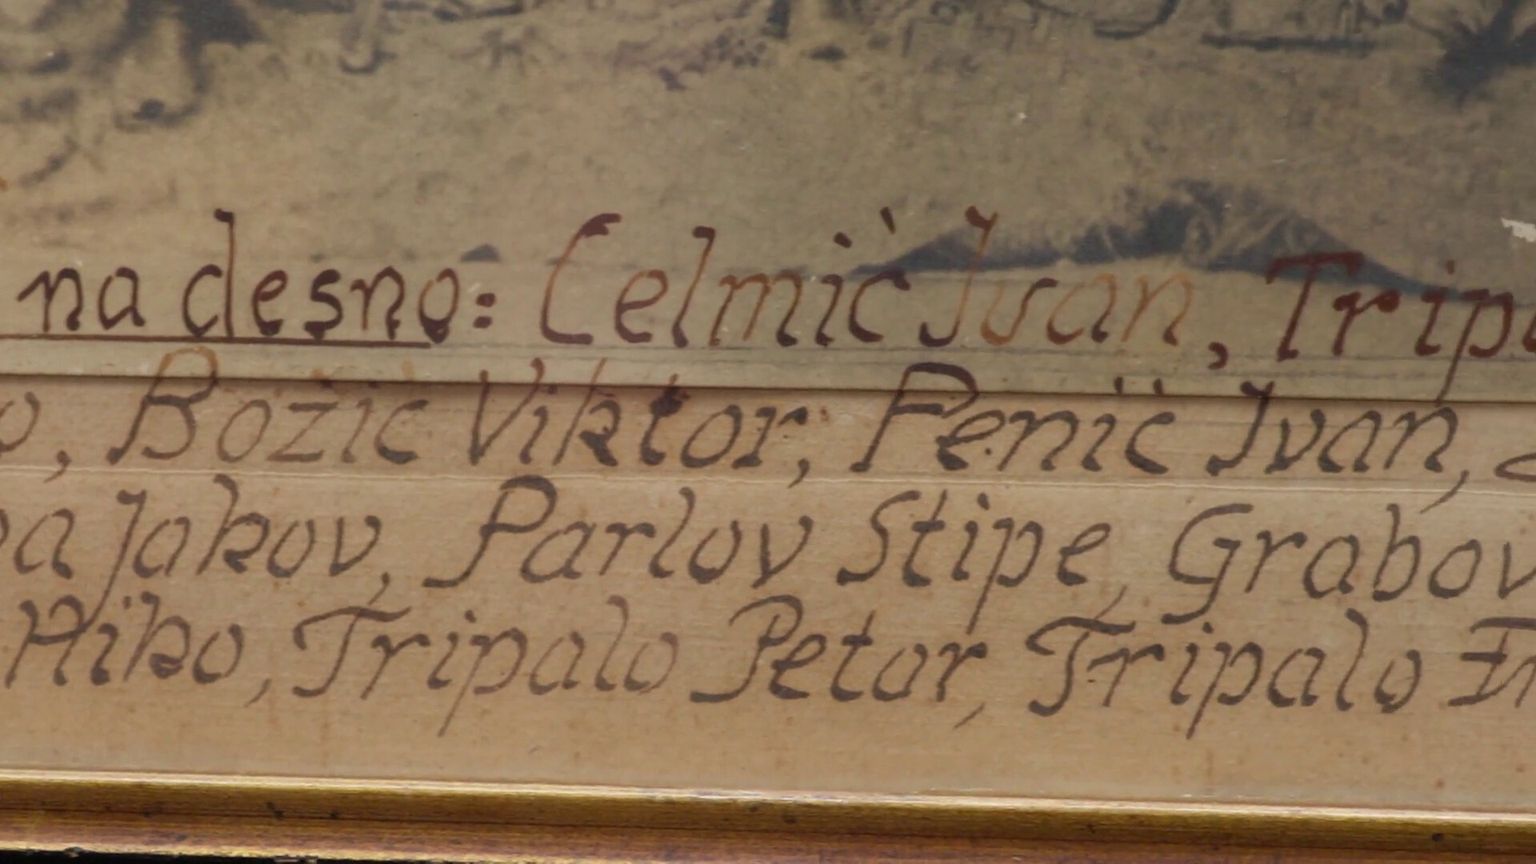 na desno: Celmić Ivan, Trip
o, Božić Viktor, Penić Ivan,
a Jakov, Parlov Stipe, Grabov
Miko, Tripalo Petar, Tripalo